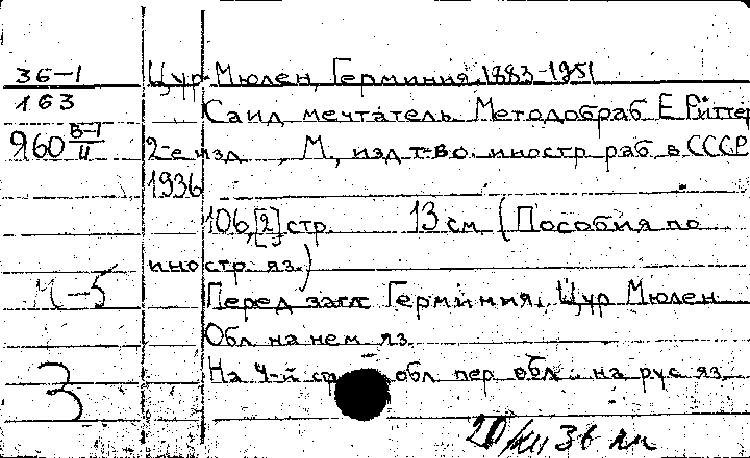 36-1
163
Я60 В-1
II
М-5
3
Цур-Мюлен, Герминия, 1883-1951
Саид мечтатель Методобраб Е Риттер
2-е изд , М, изд-т-во иностр раб в СССР
1936
106, [2] стр. 13 см (Пособия по
иностр. яз.)
Перед загл: Герминия, Цур Мюлен
Обл на нем яз.
На 4-й обл пер обл. на рус яз
20 36